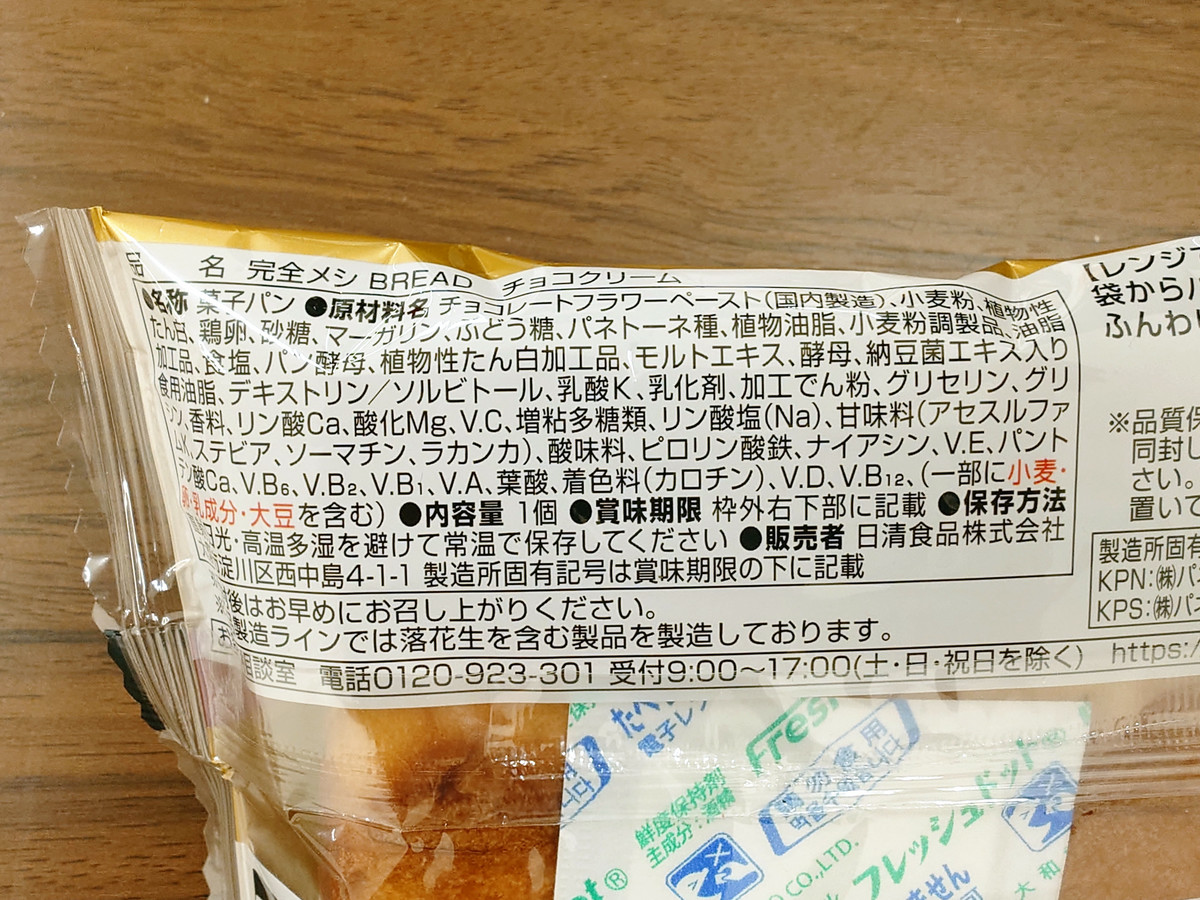 品 名 完全メシ BREAD チョコクリーム
●名称 菓子パン ●原材料名 チョコレートフラワーペースト(国内製造)、小麦粉、植物性
たん白、鶏卵、砂糖、マーガリン、ぶどう糖、パネトーネ種、植物油脂、小麦粉調製品、油脂
加工品、食塩、パン酵母、植物性たん白加工品、モルトエキス、酵母、納豆菌エキス入り
食用油脂、デキストリン/ソルビトール、乳酸K、乳化剤、加工でん粉、グリセリン、グリ
シン、香料、リン酸Ca、酸化Mg、V.C、増粘多糖類、リン酸塩(Na)、甘味料(アセスルファ
ムK、ステビア、ソーマチン、ラカンカ)、酸味料、ピロリン酸鉄、ナイアシン、V.E、パント
テン酸Ca、V.B₆、V.B₂、V.B₁、V.A、葉酸、着色料(カロチン)、V.D、V.B₁₂、(一部に小麦・
卵・乳成分・大豆を含む) ●内容量 1個 ●賞味期限 枠外右下部に記載 ●保存方法
日光・高温多湿を避けて常温で保存してください ●販売者 日清食品株式会社
淀川区西中島4-1-1 製造所固有記号は賞味期限の下に記載
後はお早めにお召し上がりください。
製造ラインでは落花生を含む製品を製造しております。
お 相談室 電話0120-923-301 受付9:00〜17:00(土・日・祝日を除く) https:/
【レンジ
袋から
ふんわ
※品質保
同封し
さい。
置いて
製造所固有
KPN:㈱パ
KPS:㈱パ
たべ
電子レ
Fresh
鮮度保持剤
主成分:酒精
CO.,LTD.
フレッシュドット®
ません
大和